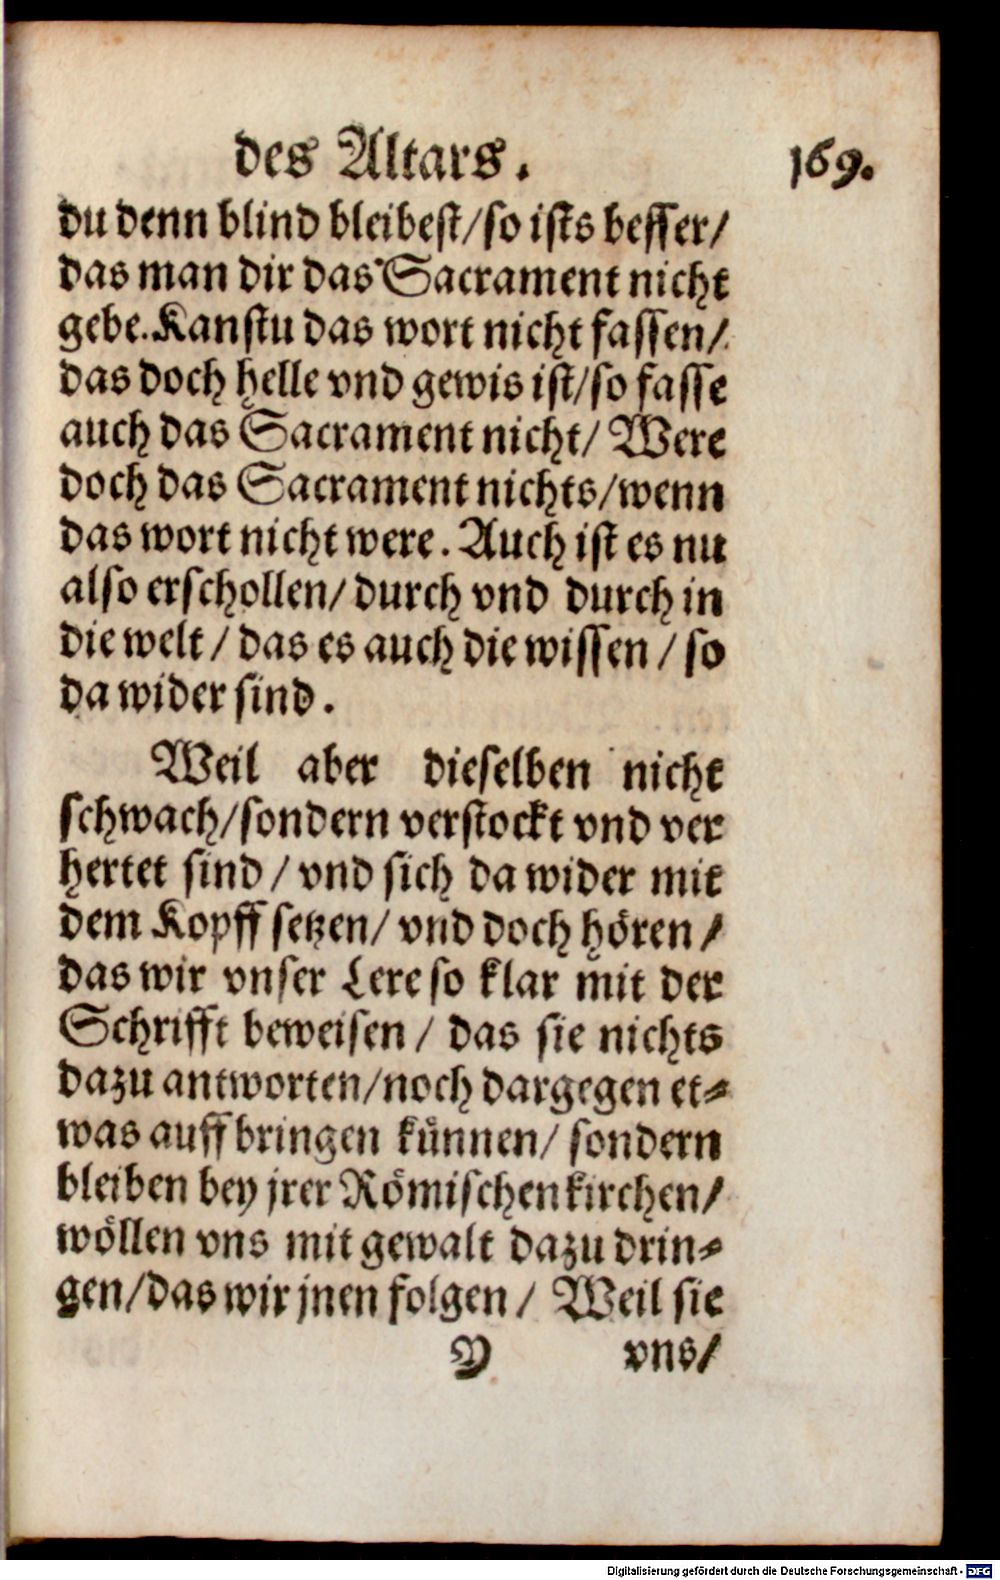 des Altars. 169.
du denn blind bleibest/so ists besser/
das man dir das Sacrament nicht
gebe. Kanstu das wort nicht fassen/
das doch helle vnd gewis ist/so fasse
auch das Sacrament nicht/ Were
doch das Sacrament nichts/wenn
das wort nicht were. Auch ist es nu
also erschollen/durch vnd durch in
die welt / das es auch die wissen / so
da wider sind.
Weil aber dieselben nicht
schwach/sondern verstockt vnd ver
hertet sind / vnd sich da wider mit
dem Kopff setzen/ vnd doch hören /
das wir vnser Lere so klar mit der
Schrifft beweisen / das sie nichts
dazu antworten/noch dargegen et-
was auff bringen künnen/ sondern
bleiben bey jrer Römischen kirchen/
wöllen vns mit gewalt dazu drin-
gen/das wir jnen folgen / Weil sie
Y vns/
Digitalisierung gefördert durch die Deutsche Forschungsgemeinschaft - DFG